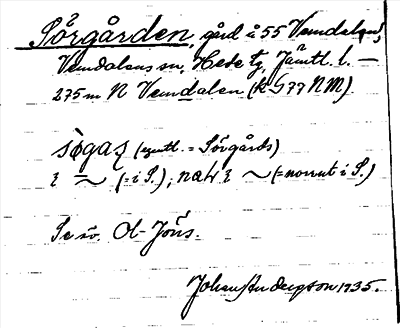 Sörgården, gård å 55 Vemdalen,
Vemdalens sn, Hede tg, Jämtl. l. —
275 m N Vemdalen (k G77 NM).
sögas (egentl. = Sörgårds)
(= i S.), (= norrut i S.)
Se äv. Ol-Jöns.
Johan Anderson 1935.